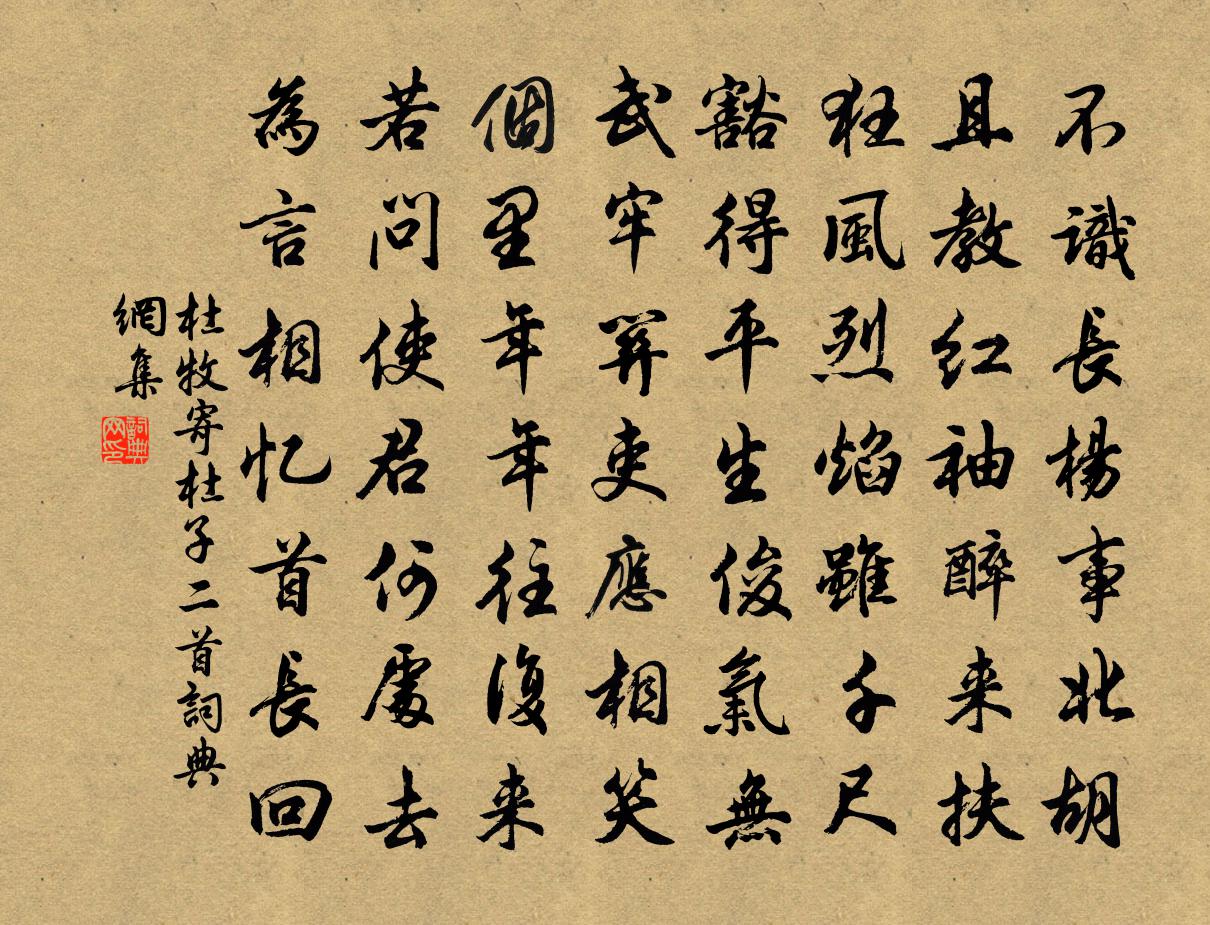 不識長楊事北胡
且教紅袖醉来扶
狂風烈焰雖千尺
豁得平生俊氣無
武牢關吏應相笑
個里年年往復来
若問使君何處去
為言相忆首長回
杜牧寄杜子二首詞典
網集
詞典
网印